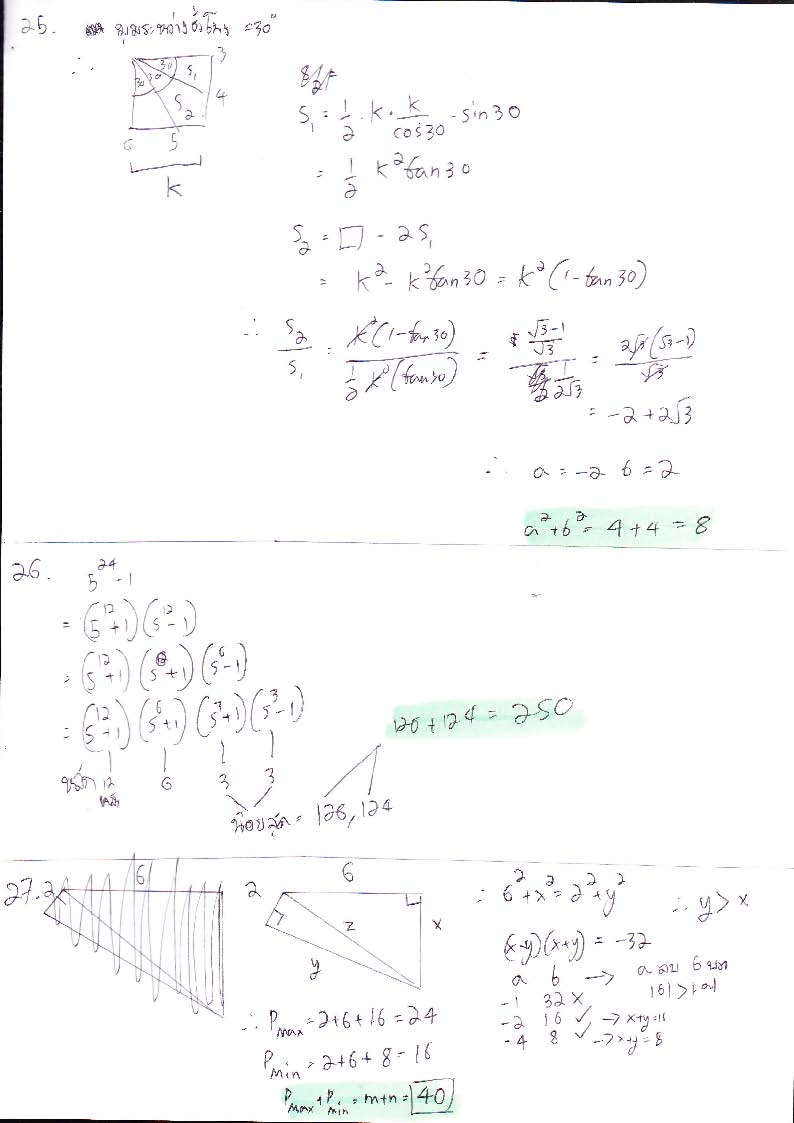 25. มุมระหว่างชั่วโมง = 30°
∴
3
30
30
30
S₁
S₂
4
6 5
k
S₁ = 1/2 · k · k/cos30 · sin30
= 1/2 k² tan30
S₂ = □ - 2S₁
= k² - k² tan30 = k²(1 - tan30)
∴ S₂/S₁ = k²(1 - tan30) / (1/2 k²(tan30)) = ((√3-1)/√3) / (1/(2√3)) = 2√3(√3-1)/√3
= -2 + 2√3
∴ a = -2 b = 2
a² + b² = 4 + 4 = 8
26. 5²⁴ - 1
= (5¹² + 1)(5¹² - 1)
= (5¹² + 1)(5⁶ + 1)(5⁶ - 1)
= (5¹² + 1)(5⁶ + 1)(5³ + 1)(5³ - 1)
12 6 3 3
หลัก
น้อยสุด = 126, 124
126 + 124 = 250
27. 2 6
2 6
x
z
y
∴ 6² + x² = 2² + y² ∴ y > x
(x-y)(x+y) = -32
a b → a ลบ b บวก
|b| > |a|
-1 32 ×
-2 16 ✓ → x+y=16
-4 8 ✓ → x+y=8
∴ Pmax = 2+6+16 = 24
Pmin = 2+6+8 = 16
Pmax + Pmin = m+n = 40